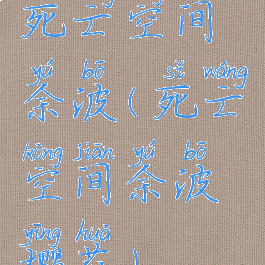 死亡空间
yú bō sǐ wáng
余波(死亡
kōng jiān yú bō
空间余波
yīng huā
樱花)